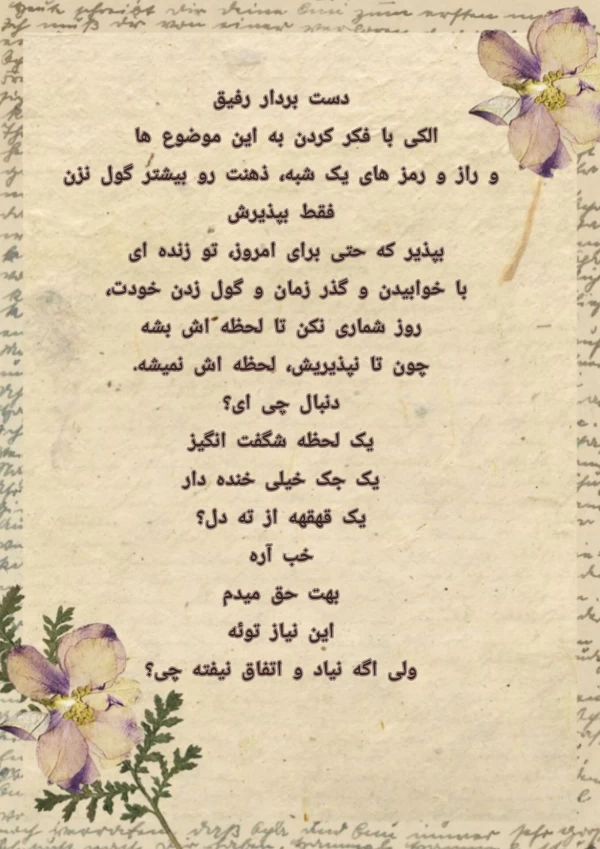 دست بردار رفیق
الکی با فکر کردن به این موضوع ها
و راز و رمز های یک شبه، ذهنت رو بیشتر گول نزن
فقط بپذیرش
بپذیر که حتی برای امروز، تو زنده ای
با خوابیدن و گذر زمان و گول زدن خودت،
روز شماری نکن تا لحظه اش بشه
چون تا نپذیریش، لحظه اش نمیشه.
دنبال چی ای؟
یک لحظه شگفت انگیز
یک جک خیلی خنده دار
یک قهقهه از ته دل؟
خب آره
بهت حق میدم
این نیاز توئه
ولی اگه نیاد و اتفاق نیفته چی؟